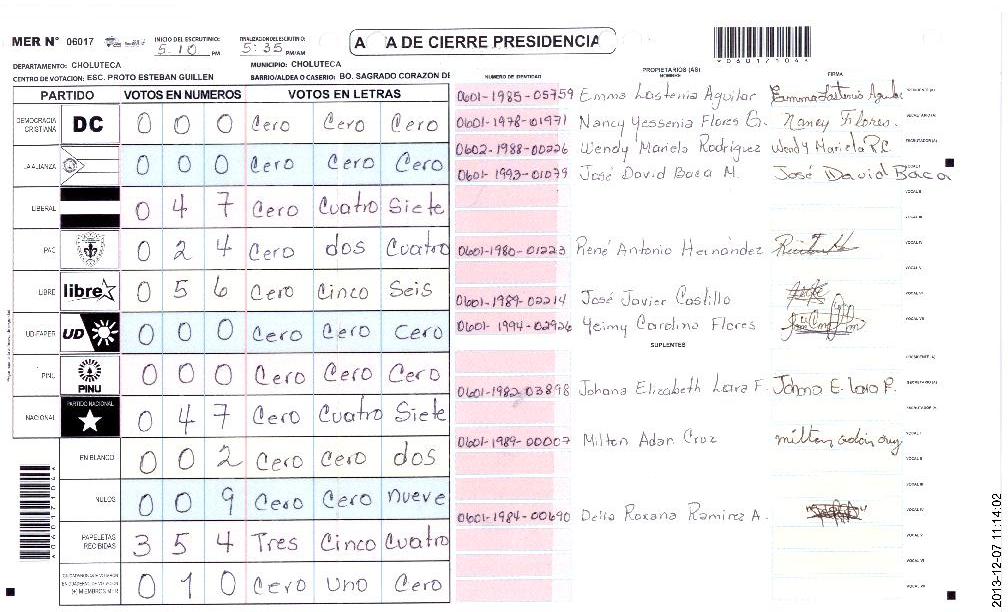 MER N° 06017
INICIO DEL ESCRUTINIO:
5:10 PM
FINALIZACION DEL ESCRUTINIO:
5:35 PM/AM
A TA DE CIERRE PRESIDENCIA
DEPARTAMENTO: CHOLUTECA
MUNICIPIO: CHOLUTECA
CENTRO DE VOTACION: ESC. PROTO ESTEBAN GUILLEN
BARRIO/ALDEA O CASERIO: BO. SAGRADO CORAZON DE
PARTIDO VOTOS EN NUMEROS VOTOS EN LETRAS
DEMOCRACIA CRISTIANA DC 0 0 0 Cero Cero Cero
LA ALIANZA 0 0 0 Cero Cero Cero
LIBERAL 0 4 7 Cero Cuatro Siete
PAC 0 2 4 Cero dos Cuatro
LIBRE libre 0 5 6 Cero Cinco Seis
UD-FAPER UD 0 0 0 Cero Cero Cero
PINU PINU 0 0 0 Cero Cero Cero
NACIONAL PARTIDO NACIONAL 0 4 7 Cero Cuatro Siete
EN BLANCO 0 0 2 Cero Cero dos
NULOS 0 0 9 Cero Cero nueve
PAPELETAS RECIBIDAS 3 5 4 Tres Cinco Cuatro
0 1 0 Cero Uno Cero
*060171044*
NUMERO DE IDENTIDAD
PROPRIETARIOS (AS)
NOMBRE
FIRMA
0601-1985-05759 Emma Lastenia Aguilar Emma Lastenia Aguilar
0601-1978-01971 Nancy Yessenia Flores G. Nancy Flores.
0602-1988-00226 Wendy Mariela Rodriguez Wendy Mariela R.
0601-1993-01079 José David Baca M. José David Baca
0601-1980-01223 René Antonio Hernández
0601-1989-02214 José Javier Castillo
0601-1994-02926 Yeimy Carolina Flores
SUPLENTES
0601-1982-03898 Johana Elizabeth Lara F. Johna E. lara F.
0601-1989-00007 Milton Adan Cruz milton adán cruz
0601-1984-00690 Delia Roxana Ramirez A.
2013-12-07 11:14:02